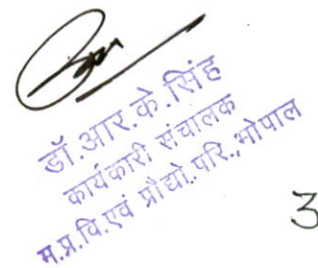 डॉ.आर.के.सिंह
कार्यकारी संचालक
म.प्र.वि.एवं प्रौद्यो.परि.,भोपाल
3